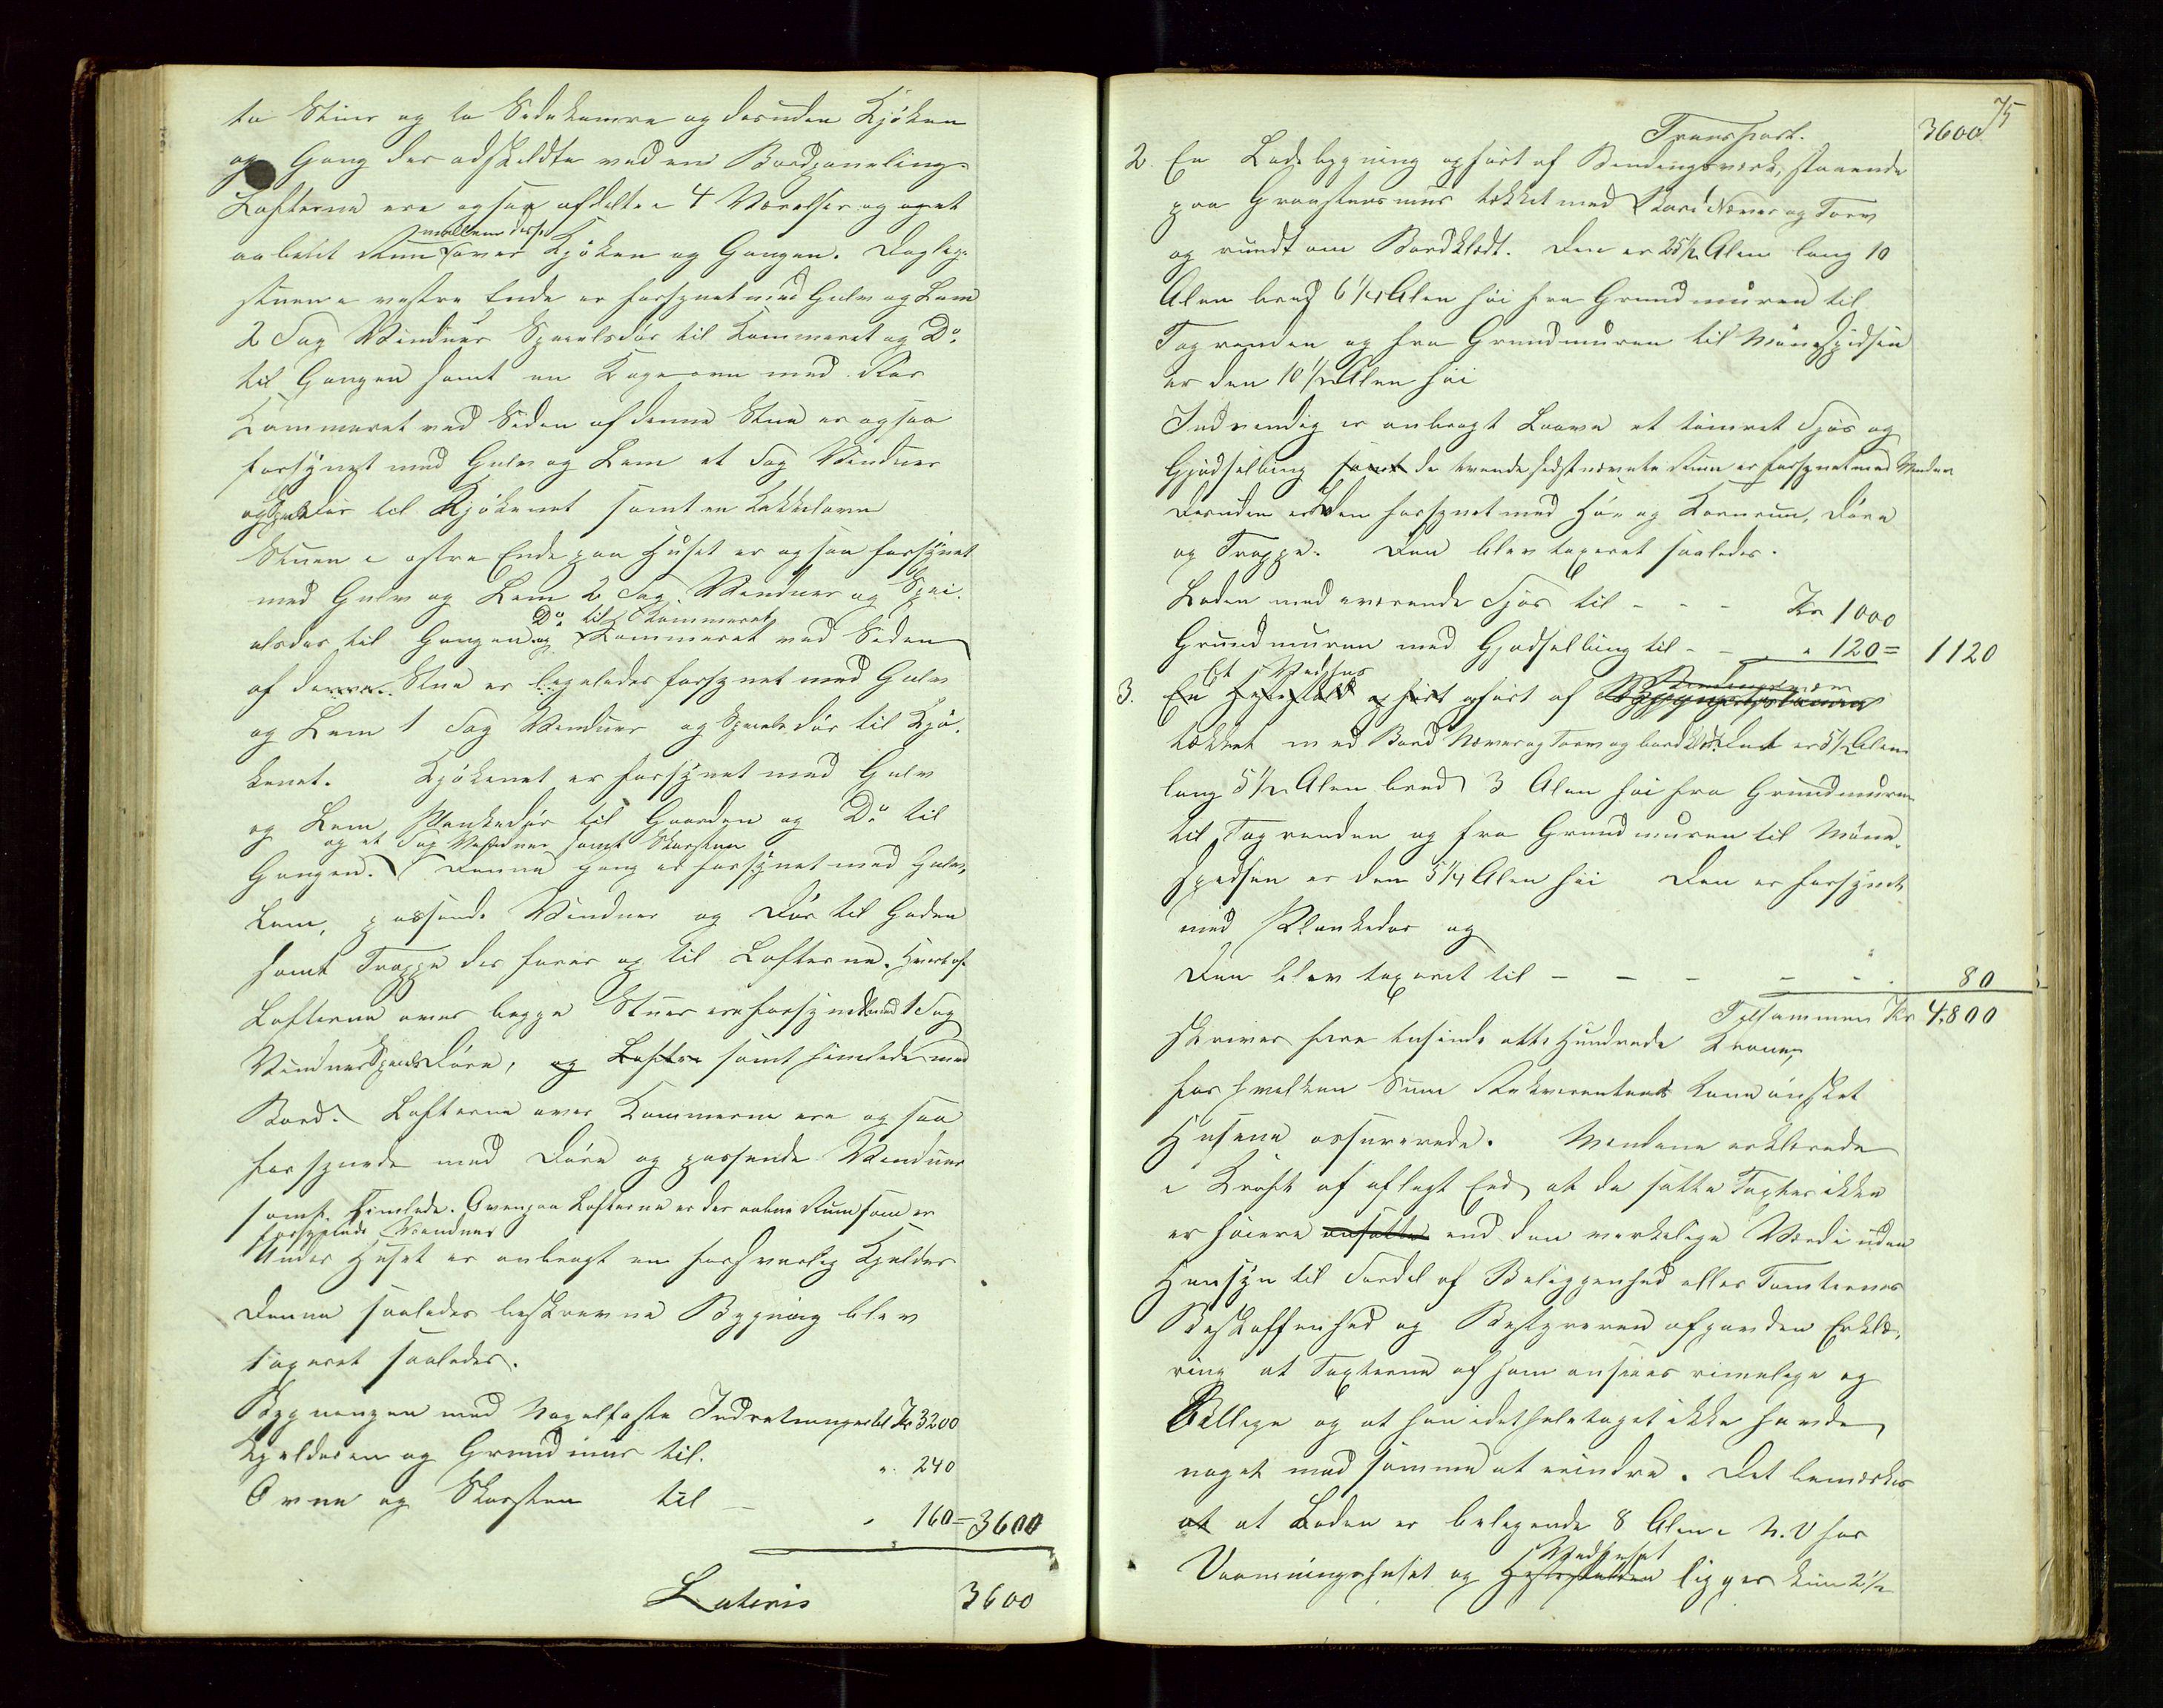 to Stuer og to Sidekamre og desuden Kjøken
og Gang der adskildte ved en Bordpaneling
Lofterne ere ogsaa afdelte i 4 Værelser og et
aabent Rum mellem disse over Kjøken og Gangen. Daglig-
stuen i vestre Ende er forsynet med Gulv og Lem
2 Fag Vinduer Speielsdør til Kammeret og Do
til Gangen samt en Kageovn med Rør
Kammeret ved Siden af denne Stue er ogsaa
forsynet med Gulv og Lem et Fag Vinduer
og Dør til Kjøkenet samt en Kakkelovn
Stuen i østre Ende paa Huset er ogsaa forsynet
med Gulv og Lem 2 Fag Vinduer og Spei-
elsdør til Gangen og Do til Kammeret Kammeret ved Siden
af denne Stue er ligeledes forsynet med Gulv
og Lem 1 Fag Vinduer og Speiels dør til Kjø-
kenet. Kjøkenet er forsynet med Gulv
og Lem Plankedør til Gaarden og Do til
Gangen. og et Fag Vinduer samt Skorsten Denne gang er forsynet med Gulv,
Lem, passende Vinduer og Dør til Gaden
samt Trappe der fører op til Lofterne. Hvert af
Lofterne over begge Stuer ere forsynet med 1 Fag
Vinduer Speiels Døre, og Loftene samt himlede med
Bord. Lofterne over Kammerne ere og saa
forsynede med Døre og passende Vinduer
samt Himlede. Ovenpaa Lofterne er der aabne Rum som er
forsynede Vinduer
Under Huset er anbragt en forsvarlig Kjelder
Denne saaledes beskrevne Bygning blev
taxeret saaledes.
Bygningen med Nagelfaste Indretninger til Kr 3200
Kjelderen og Grundmur til. " 240
Ovne og Skorsten til - " 160 = 3600
Lateris 3600
75
Transport. 3600
2. En Ladebygning opført af Bindingsværk, staaende
paa Graastensmur tækket med Næver og Torv
og rundt om Bordklædt. Den er 25 1/2 Alen lang 10
Alen bred 6 1/4 Alen høi fra Grundmuren til
Tagrenden og fra Grundmuren til Mønespidsen
er den 10 1/2 Alen høi
Indvendig er anbragt Laave et tømret Fjøs og
Gjødselbing samt de tvende sidstnævnte Rum er forsynet med Vinduer
Desuden er den forsynet med Hø- og Kornrum, Døre
og Trappe. Den blev taxeret saaledes.
Laden med værende Fjøs til - - - Kr 1000
Grundmuren med Gjødselbing til - - " 120 = 1120
3. Et Vedhus
En opført opført af Bindingsværk
tækket med Bord Næver og Torv og bordklædt. Det er 5 1/2 Alen
lang 5 1/2 Alen bred 3 Alen høi fra Grundmuren
til Tagrenden og fra Grundmuren til Møne-
spidsen er den 5 1/4 Alen høi Den er forsynet
med Plankedør og
Den blev taxeret til - - - - - 80
Tilsammen Kr 4800
skriver fire tusinde otte Hundrede Kroner,
for hvilken Sum Rekvirentens Kone ønsket
Husene assurerede. Mændene erklærede
i Kraft af aflagt Eed at de satte Taxter ikke
er høiere ansatte end den virkelige Værdi uden
Hensyn til Fordel af Beliggenhed eller Tomternes
Beskaffenhed og Bestyreren afgav den Erklæ-
ring at Taxterne af ham ansees rimelige og
Billige og at han idethele taget ikke havde
noget mod samme at erindre. Det bemærkes
at at Laden er belegende 8 Alen i N.V for
Vaaningshuset og Vedhuset ligger kun 2 1/2